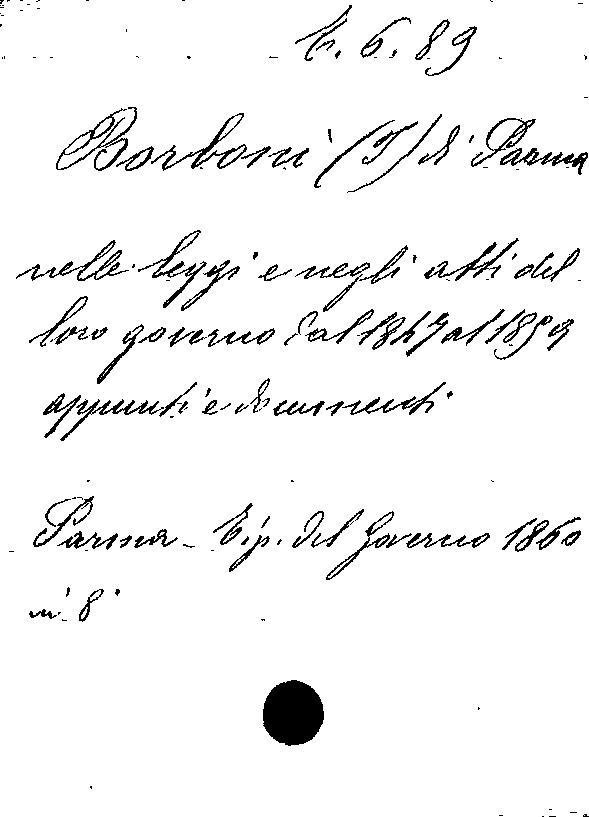 E. 6. 89
Borboni (I) di Parma
nelle leggi e negli atti del
loro governo dal 1847 al 1859
appunti e documenti
Parma - Tip. del Governo 1860
in 8°